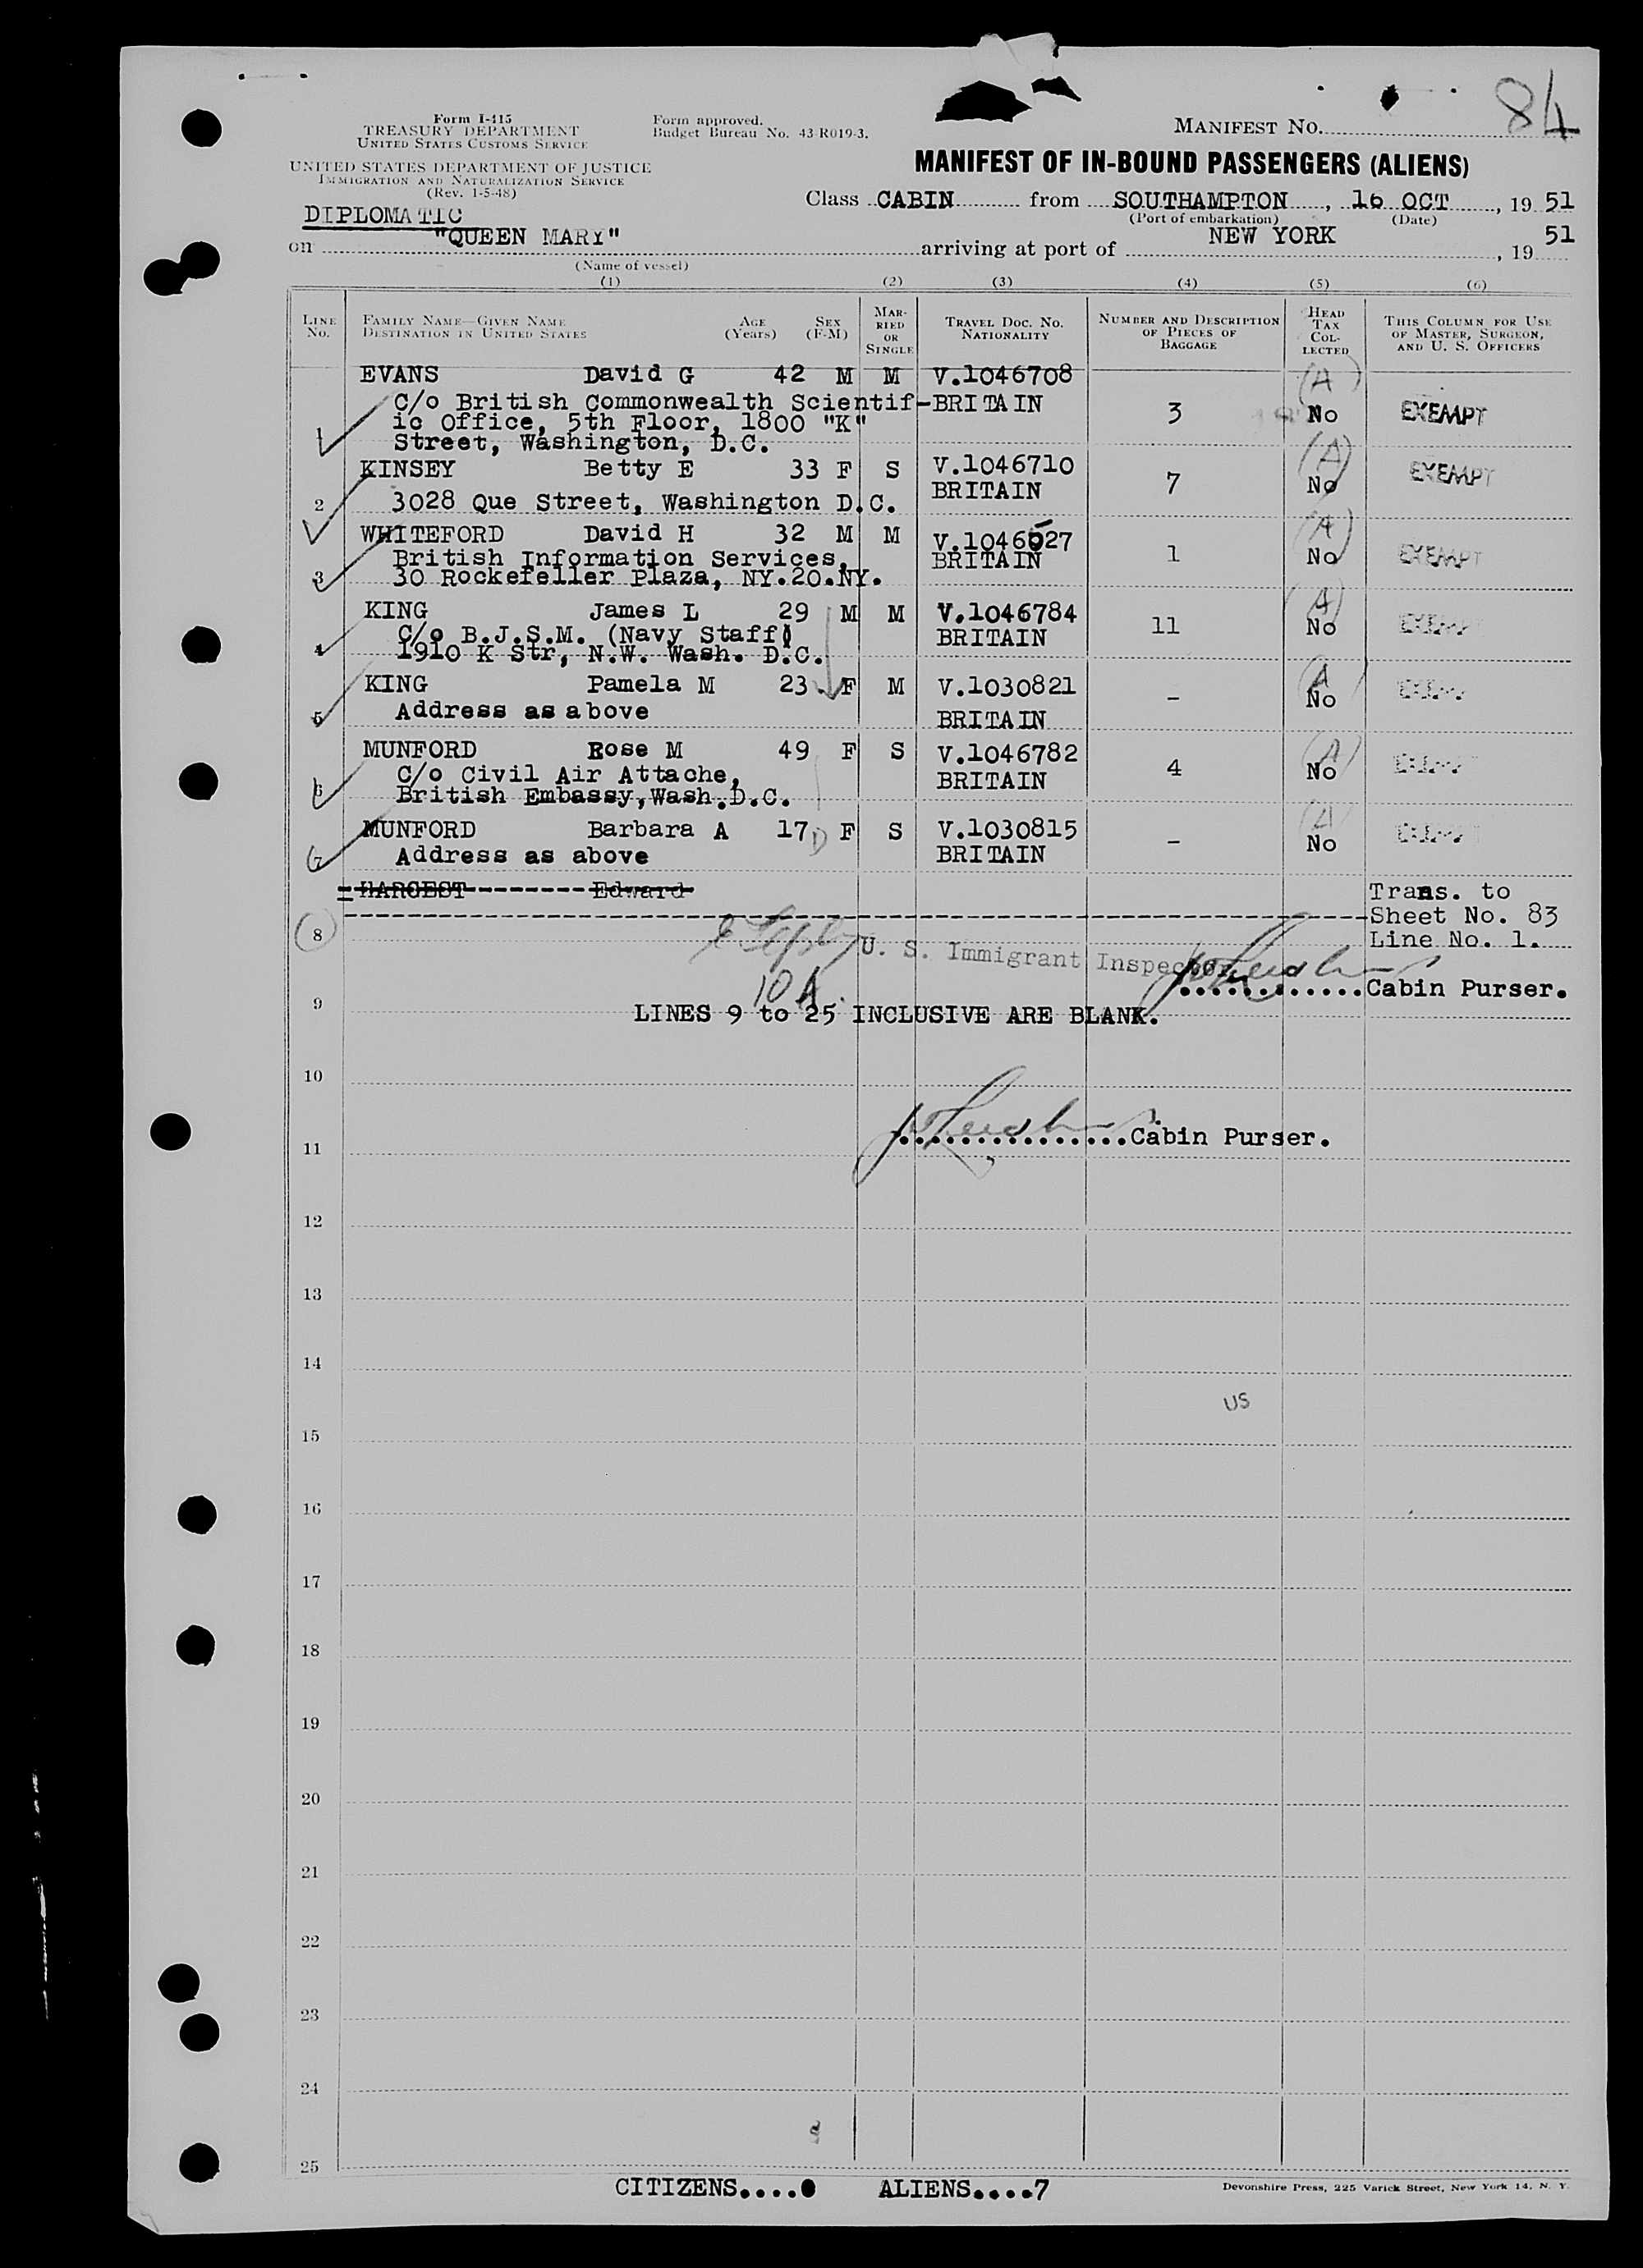 84
Form I-415
TREASURY DEPARTMENT
UNITED STATES CUSTOMS SERVICE
Form approved.
Budget Bureau No. 43-R019-3.
MANIFEST NO.
UNITED STATES DEPARTMENT OF JUSTICE
IMMIGRATION AND NATURALIZATION SERVICE
(Rev. 1-5-48)
MANIFEST OF IN-BOUND PASSENGERS (ALIENS)
DIPLOMATIC
Class CABIN from SOUTHAMPTON, 16 OCT, 19 51
(Port of embarkation) (Date)
on "QUEEN MARY" arriving at port of NEW YORK, 19 51
(Name of vessel)
(1) (2) (3) (4) (5) (6)
LINE NO. FAMILY NAME—GIVEN NAME DESTINATION IN UNITED STATES AGE (Years) SEX (F-M) MARRIED OR SINGLE TRAVEL DOC. NO. NATIONALITY NUMBER AND DESCRIPTION OF PIECES OF BAGGAGE HEAD TAX COLLECTED THIS COLUMN FOR USE OF MASTER, SURGEON, AND U. S. OFFICERS
EVANS David G 42 M M V.1046708 (A)
C/o British Commonwealth Scientif- BRITAIN 3 No EXEMPT
ic Office, 5th Floor, 1800 "K"
Street, Washington, D.C.
KINSEY Betty E 33 F S V.1046710 (A) EXEMPT
2 3028 Que Street, Washington D.C. BRITAIN 7 No
WHITEFORD David H 32 M M V.1046527 (A)
British Information Services, BRITAIN 1 No EXEMPT
3 30 Rockefeller Plaza, NY.20.NY.
KING James L 29 M M V.1046784 (A)
C/o B.J.S.M. (Navy Staff) BRITAIN 11 No EXEMPT
4 1910 K Str, N.W. Wash. D.C.
KING Pamela M 23 F M V.1030821 (A)
5 Address as above BRITAIN - No EXEMPT
MUNFORD Rose M 49 F S V.1046782 (A)
C/o Civil Air Attache, BRITAIN 4 No EXEMPT
6 British Embassy, Wash. D.C.
MUNFORD Barbara A 17 F S V.1030815 (A)
7 Address as above BRITAIN - No EXEMPT
HARGEST--------Edward Trans. to
Sheet No. 83
8 Line No. 1.
U. S. Immigrant Inspector
............Cabin Purser.
10A
9 LINES 9 to 25 INCLUSIVE ARE BLANK.
10
...............Cabin Purser.
11
12
13
14
US
15
16
17
18
19
20
21
22
23
24
25
CITIZENS....0 ALIENS....7
Devonshire Press, 225 Varick Street, New York 14, N. Y.